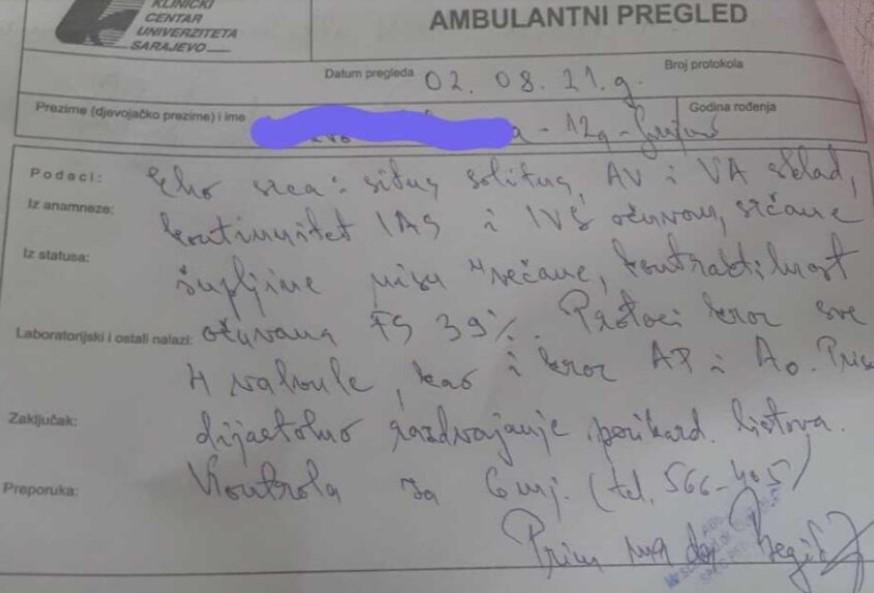 KLINIČKI
CENTAR
UNIVERZITETA
SARAJEVO
AMBULANTNI PREGLED
Datum pregleda 02. 08. 21.g. Broj protokola
Prezime (djevojačko prezime) i ime Godina rođenja
a - 12g -
Podaci: Eho srca: situs solitus, AV i VA sklad,
Iz anamneze: kontinuitet IAS i IVS očuvan, srčane
Iz statusa: šupljine nisu uvećane, kontraktilnost
Laboratorijski i ostali nalazi: očuvana FS 39%. Protoci kroz sve
4 valvule, kao i kroz AP i Ao.
Zaključak: dijastolno razdvajanje perikard. listova.
Preporuka: Kontrola za 6 mj. (tel. 566-405)
Prim mr dr Begić